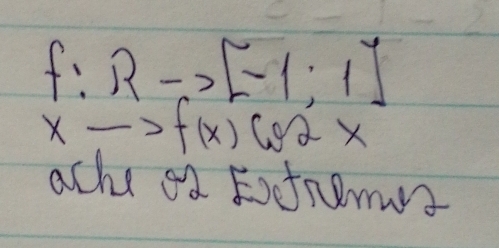 f: R -> [-1; 1]
x -> f(x) cos x
ache os Extremos